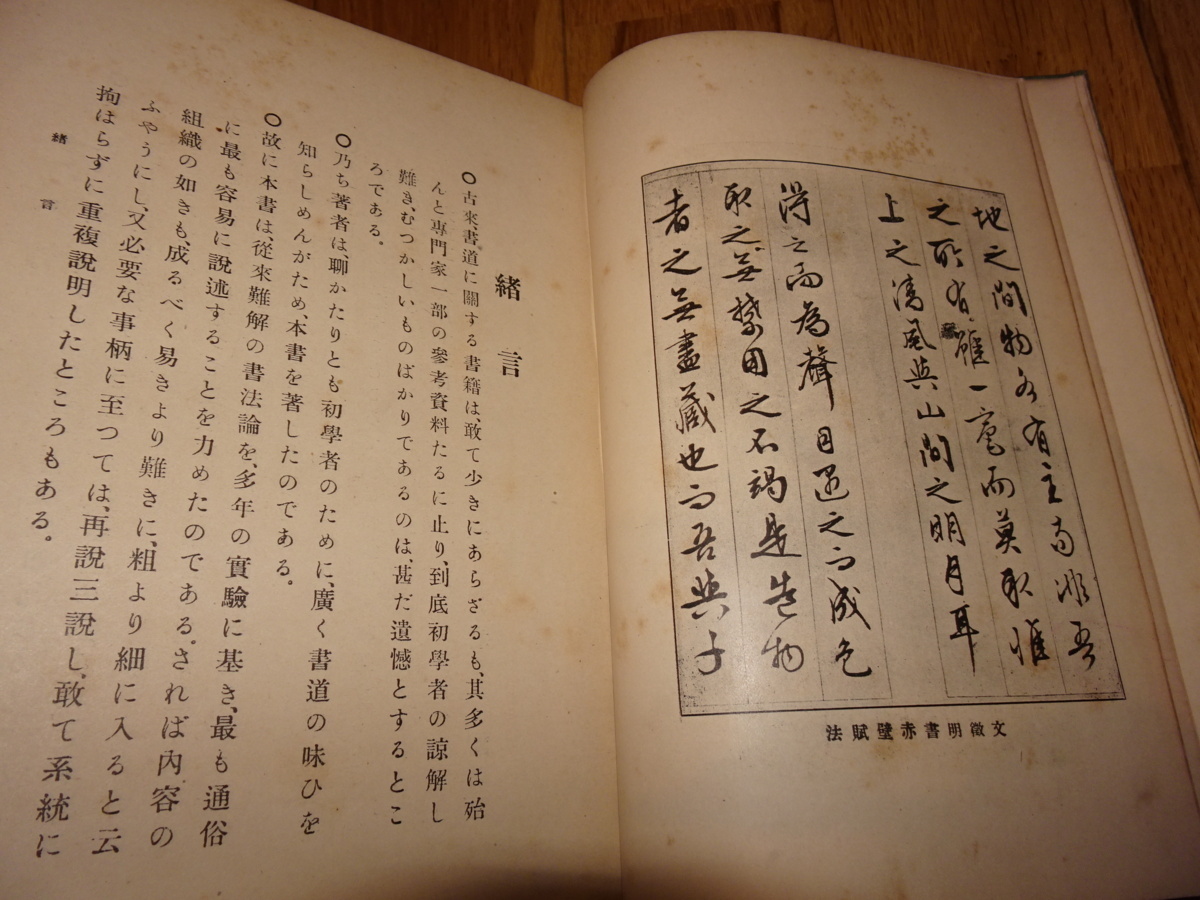 地之間物各有主苟非吾
之所有雖一毫而莫取惟
上之清風與山間之明月耳
得之而為聲目遇之而成色
取之無禁用之不竭是造物
者之無盡藏也而吾與子
文徵明書赤壁賦法
緒言
○古來、書道に關する書籍は、敢て少きにあらざるも、其多くは殆
んと專門家一部の參考資料たるに止り、到底初學者の諒解し
難き、むつかしいものばかりであるのは、甚だ遺憾とするとこ
ろである。
○乃ち著者は、聊かたりとも初學者のために、廣く書道の味ひを
知らしめんがため、本書を著したのである。
○故に本書は、從來難解の書法論を、多年の實驗に基き、最も通俗
に最も容易に說述することを力めたのである。されば內容の
組織の如きも、成るべく易きより難きに、粗より細に入ると云
ふやうにし、又必要な事柄に至つては、再說三說し、敢て系統に
拘はらずに重複說明したところもある。
緒言